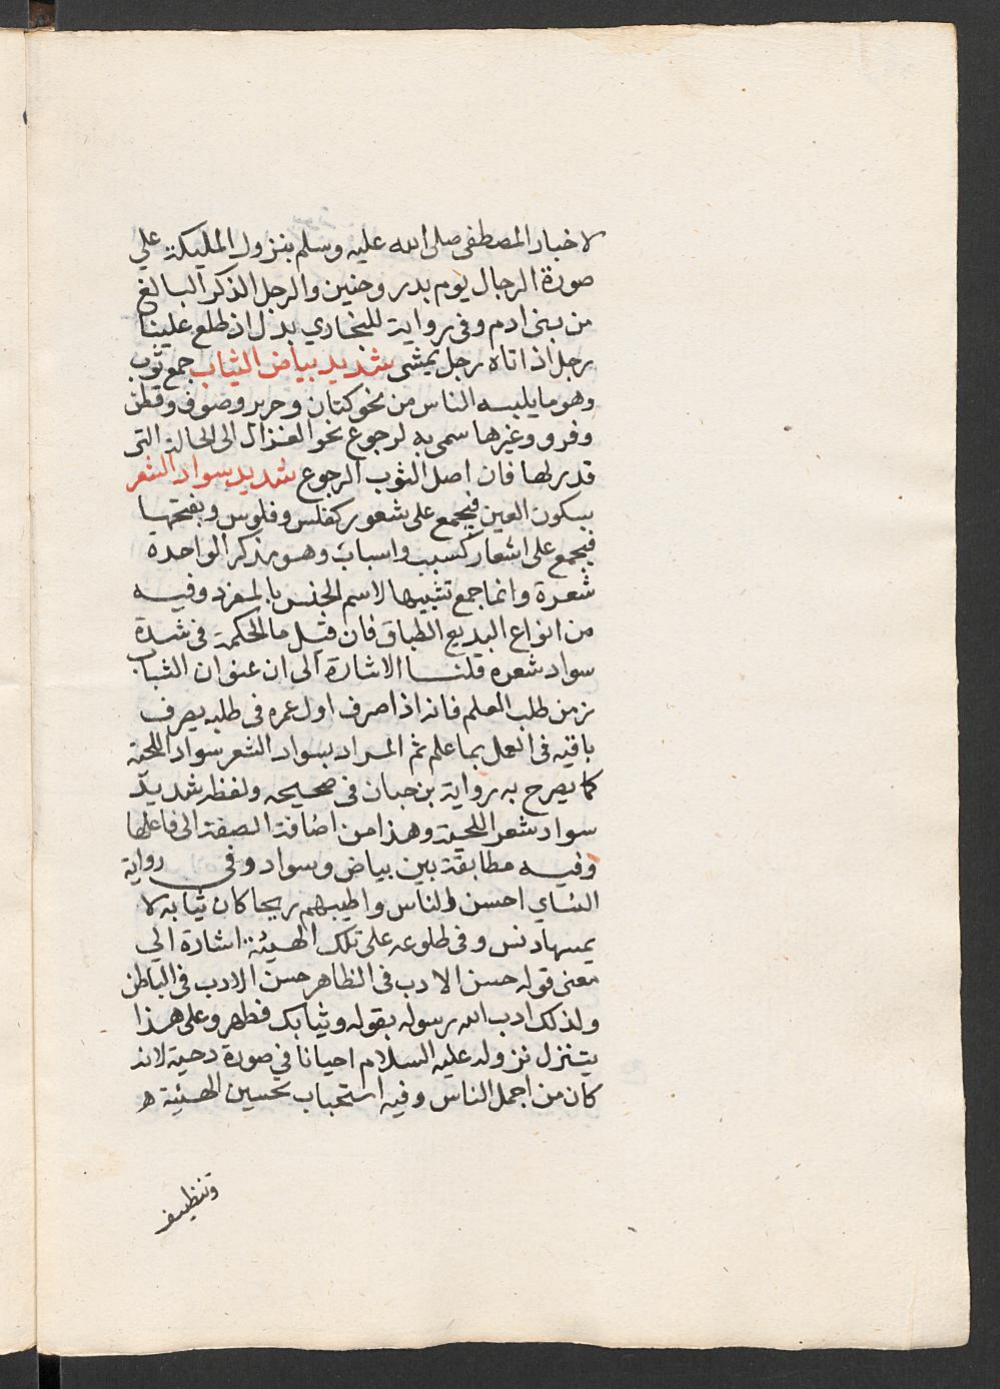 لاخبار المصطفى صلى الله عليه وسلم بنزول المليكة علي
صورة الرجال يوم بدر وحنين والرجل الذكر البالغ
من بني ادم وفي رواية للبخاري بدل اذ طلع علينا
رجل اذ اتاه رجل يمشى شديد بياض الثياب جمع ثوب
وهو ما يلبسه الناس من نحو كتان وحرير وصوف وقطن
وفرو وغيرها سمى به لرجوع نحو الغزال الى الحالة التى
قدر لها فان اصل الثوب الرجوع شديد سواد الشعر
بسكون العين فيجمع على شعور كفلس وفلوس وبفتحها
فيجمع على اشعار كسبب واسباب وهو مذكر الواحدة
شعرة وانما جمع تشبيها لاسم الجنس بالمفرد وفيه
من انواع البديع الطباق فان قيل ما الحكمة فى شدة
سواد شعره قلنا الاشارة الى ان عنوان الشباب
زمن طلب العلم فانه اذا صرف اول عمره فى طلبه يصرف
باقيه فى العمل بما علم ثم المراد بسواد الشعر سواد اللحية
كما يصرح به رواية بن حبان فى صحيحه ولفظه شديد
سواد شعر اللحية وهذا من اضافة الصفة الى فاعلها
وفيه مطابقة بين بياض وسواد وفي رواية
النساي احسن الناس واطيبهم ريحا كان ثيابه لا
يمسها دنس وفى طلوعه على تلك الهيئة اشارة الي
معنى قوله حسن الادب فى الظاهر حسن الادب فى الباطن
ولذلك ادب الله رسوله بقوله وثيابك فطهر وعلى هذا
يتنزل نزوله عليه السلام احيانا في صورة دحية لانه
كان من اجمل الناس وفيه استحباب تحسين الهيئة ه
وتنظيف